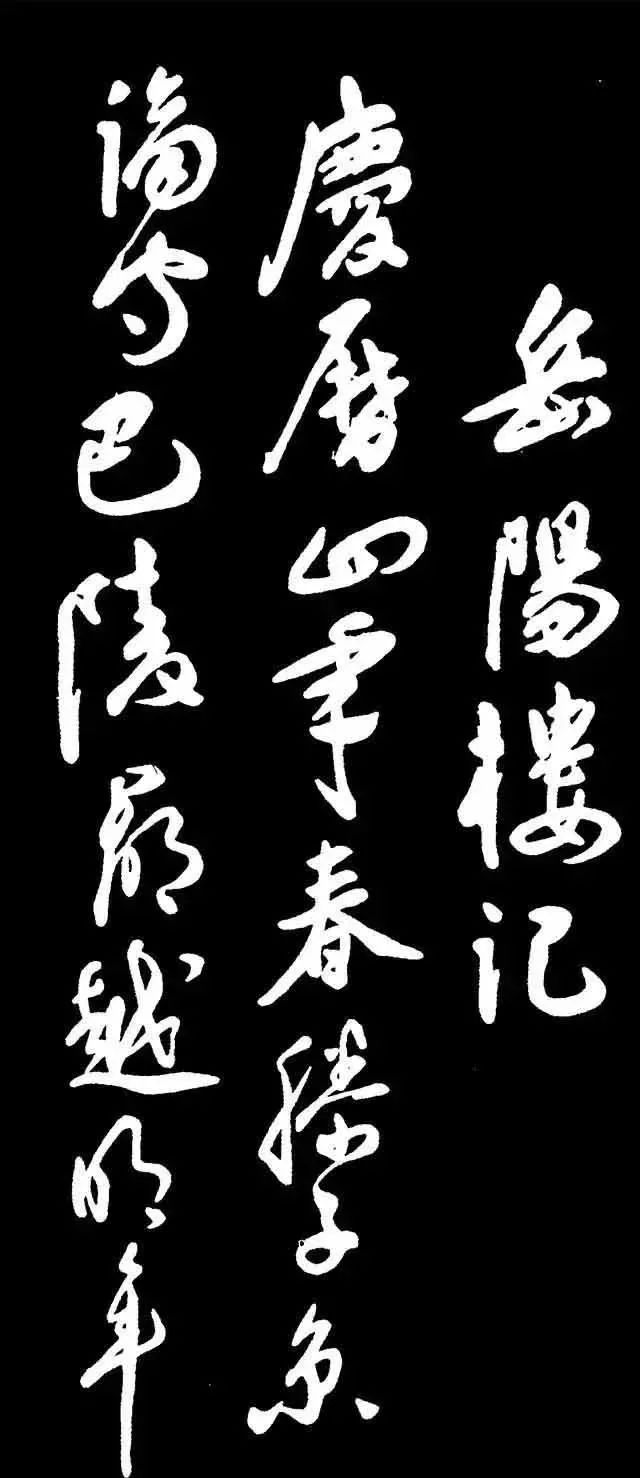 岳陽樓记
慶曆四年春滕子京
謫守巴陵郡越明年